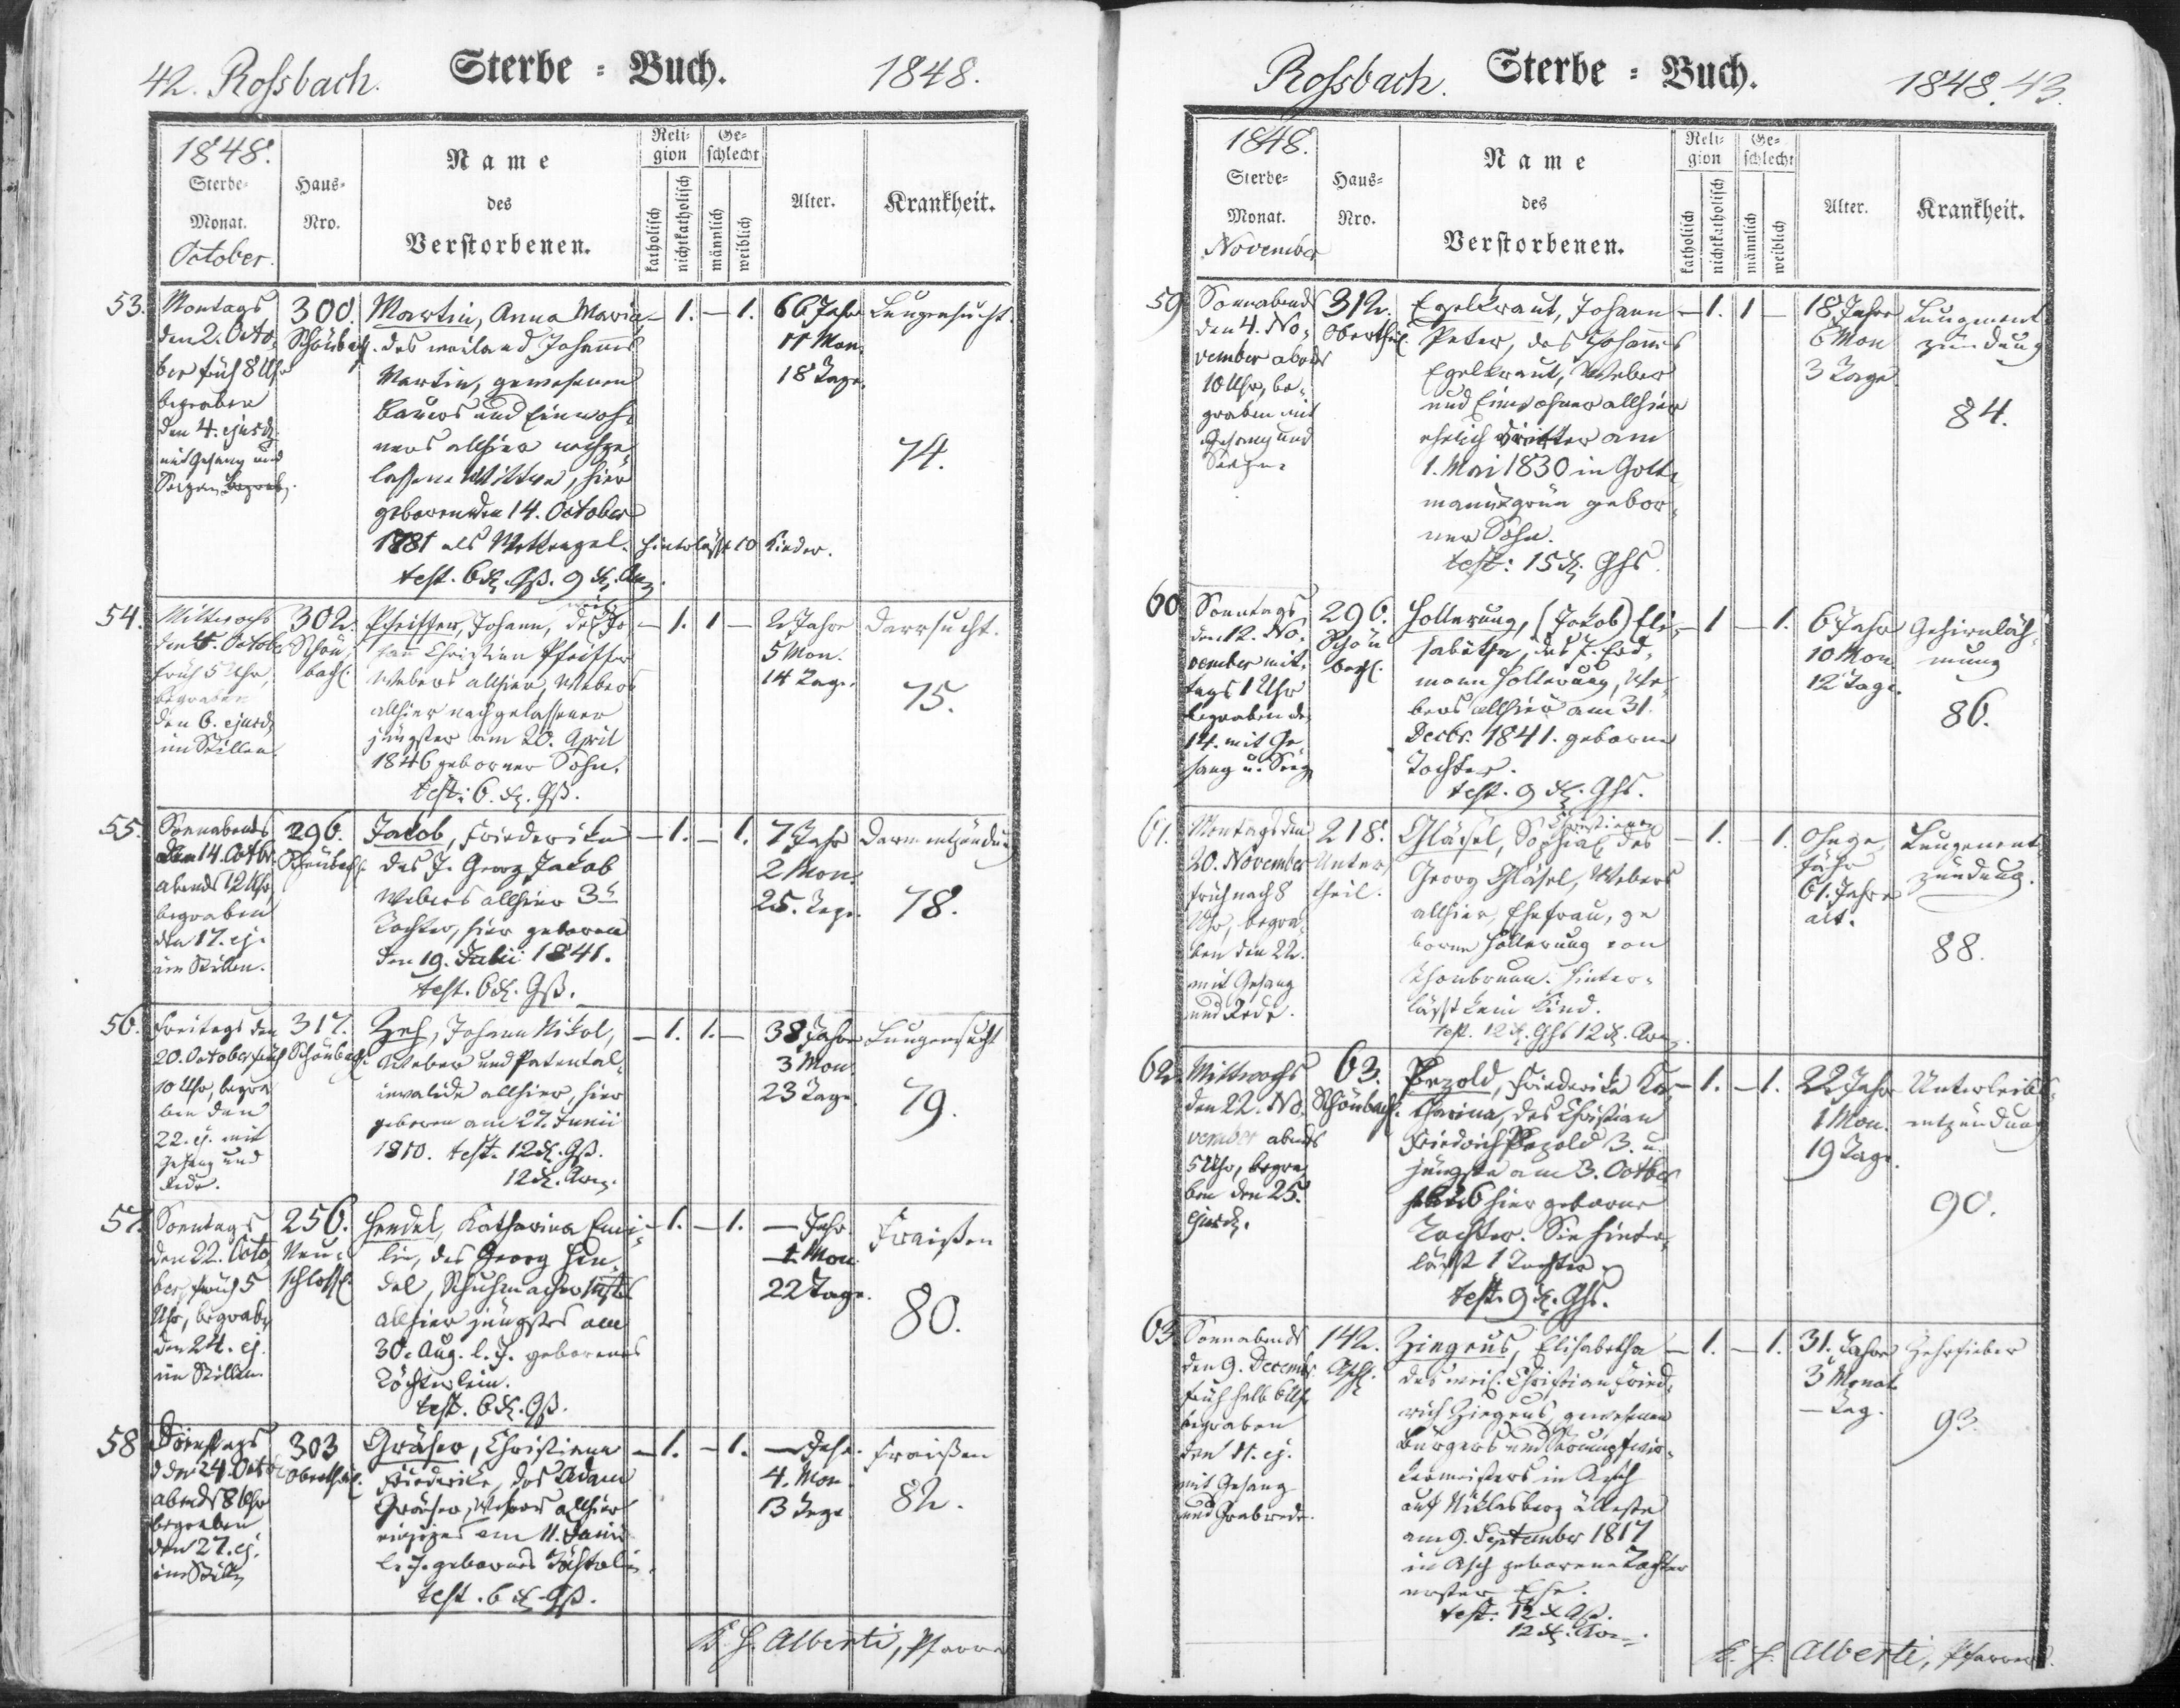 42. Rossbach. Sterbe = Buch. 1848.
1848.
Sterbe-
Monat.
October.
Haus-
Nro.
Name
des
Verstorbenen.
Reli-
gion
katholisch
nichtkatholisch
Ge-
schlecht
männlich
weiblich
Alter.
Krankheit.
53.
Montags
den 2. Octo-
ber früh 8 Uhr
begraben
den 4. ejusd.
mit Gesang und
Segen
300.
Schönbach.
Martin, Anna Maria
des weiland Johannes
Martin, gewesenen
Bauers und Einwoh-
ners allhier nachge-
lassene Wittwe, hier
geboren den 14. October
1781 als Wettengel. hinterläßt 10 Kinder.
test. 6 x. Gß. 9 x.
— 1. — 1.
66 Jahr
11 Mon.
18 Tage.
Lungensucht.
74.
54.
Mittwochs
den 4. Octob.
früh 5 Uhr,
begraben
den 6. ejusd.
im Stillen.
302.
Schön-
bach.
Pfeiffer, Johann, des weil. Jo-
hann Christian Pfeiffer
Webers allhier, Webers
allhier nachgelassener
jüngster am 20. April
1846 geborner Sohn.
test: 6. x. Gß.
— 1. 1 —
2 Jahre
5 Mon.
14 Tage.
Darrsucht.
75.
55.
Sonnabends
den 14. Octbr.
abends 12 Uhr,
begraben
den 17. ej.
im Stillen.
296.
Schönbach.
Jacob, Friederike
des J. Georg Jacob
Webers allhier 3te
Tochter, hier geboren
den 19. Julii 1841.
test. 6 x. Gß.
— 1. — 1.
7 Jahr
2 Mon.
25. Tage.
Darmentzündung
78.
56.
Freitags den
20. October früh
10 Uhr, begra-
ben den
22. ej. mit
Gesang und
Rede.
317.
Schönbach.
Zeh, Johann Nikol,
Weber und Patental-
invalide allhier, hier
geboren am 27. Junii
1810. test. 12 x. Gß.
12 x.
— 1. 1. —
38 Jahre
3 Mon.
23 Tage.
Lungensucht
79.
57.
Sonntags
den 22. Octo-
ber, früh 5
Uhr, begrab.
den 24. ej.
im Stillen.
256.
Neu-
schloss.
Hendel, Katharina Emi-
lie, des Georg Hen-
del, Schuhmachermstrs
allhier jüngstes am
30. Aug. l. J. geborenes
Töchterlein.
test. 6 x. Gß.
— 1. — 1.
— Jahr.
1 Mon.
22 Tage.
Fraißen
80.
58
Dienstags
den 24. Octo
abends 8 Uhr
begraben
den 27. ej.
im Stillen
303
Obertheil.
Gräser, Christiana
Friederike, des Adam
Gräser, Webers allhier
einziges am 11. Junii
l. J. gebornes Töchterlein.
test. 6 x. Gß.
— 1. — 1.
— Jahr.
4. Mon.
13 Tage
Fraißen
82.
K. H. Alberti, Pfarrer
Rossbach. Sterbe = Buch. 1848. 43.
1848.
Sterbe-
Monat.
November
Haus-
Nro.
Name
des
Verstorbenen.
Reli-
gion
katholisch
nichtkatholisch
Ge-
schlecht
männlich
weiblich
Alter.
Krankheit.
59
Sonnabends
den 4. No-
vember abends
10 Uhr, be-
graben mit
Gesang und
Segen.
312.
Obertheil.
Egelkraut, Johann
Peter, des Johannes
Egelkraut, Weber
und Einwohner allhier
ehelich dritter am
1. Mai 1830 in Gott-
mannsgrün gebor-
ner Sohn.
test: 15 x. Ghs.
— 1. 1 —
18 Jahre
6 Mon
3 Tage.
Lungenent
zündung
84.
60
Sonntags
den 12. No-
vember mit-
tags 1 Uhr
begraben den
14. mit Ge-
sang u. Seg.
296.
Schön
bach.
Hollerung, (Jakob) Eli-
sabetha, des J. Erd-
mann Hollerung, We-
bers allhier am 31.
Decbr. 1841. geborne
Tochter.
test. 9 x. Ghs.
— 1 — 1.
6 Jahr
10 Mon.
12 Tage.
Gehirnläh-
mung
86.
61.
Montags den
20. November
früh nach 8
Uhr, begra-
ben den 22.
mit Gesang
und Rede.
218.
Unter-
theil.
Gläsel, Sophia Christiana des
Georg Gläsel, Webers
allhier, Ehefrau, ge
borne Hollerung von
Schönbrunn. Hinter-
lässt kein Kind.
test. 12 x. Ghs 12 x.
— 1. — 1.
Ohnge-
fähr
61. Jahre
alt.
Lungenent-
zündung.
88.
62.
Mittwochs
den 22. No-
vember abends
5 Uhr, begra-
ben den 25.
ejusd.
63.
Schönbach.
Pezold, Friederike Ka-
tharina, des Christian
Friedrich Pezold 3. u.
jüngste am 3. Octber
1826 hier geborne
Tochter. Sie hinter-
lässt 1 Tochter.
test. 9 x. Ghs.
— 1. — 1.
22 Jahr
1 Mon.
19 Tage.
Unterleibs-
entzündung
90.
63.
Sonnabends
den 9. Decembr.
früh halb 6 Uhr
begraben
den 11. ej.
mit Gesang
und Grabrede.
142.
Asch.
Ziegeus, Elisabetha
des weil. Christian Fried-
rich Ziegeus, gewesenen
Bürgers und Strumpfwir-
kermeisters in Asch
auf Niklasberg älteste
am 9. September 1817
in Asch geborene Tochter
erster Ehe.
test. 12 x Gß.
12 x.
— 1. — 1.
31. Jahre
3 Monat.
— Tag.
Zehrfieber
93.
K. H. Alberti, Pfarrer.